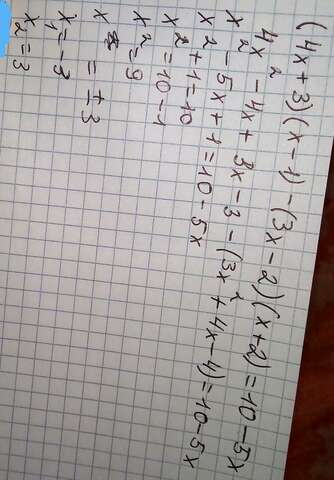 (4x+3)(x-1)-(3x-2)(x+2)=10-5x
4x²-4x+3x-3-(3x²+4x-4)=10-5x
x²-5x+1=10-5x
x²+1=10
x²=10-1
x²=9
x = ±3
x₁=-3
x₂=3